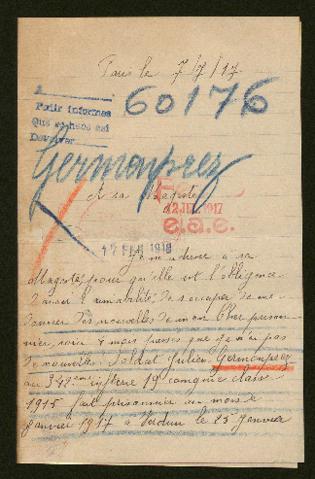 Paris le 7/7/17
60176
Pedir informes
Que se hace así
Devolver
Germonprez
A sa Majesté
12 JUL 1917
e.a.e.
17 FEB 1918
Je m'adresse a sa
Majesté pour qu'elle ait l'obligence
d'avoir l'amabilité de s'occuper de me
donner des nouvelles de mon cher prison
nier, voir 4 mois passés que je n'ai pas
de nouvelle Soldat Julien Germonprez
au 342ème inftrie 19 compnie class
1915 fait prisonnier au mois de
Janvier 1917 à Verdun le 25 Janvier